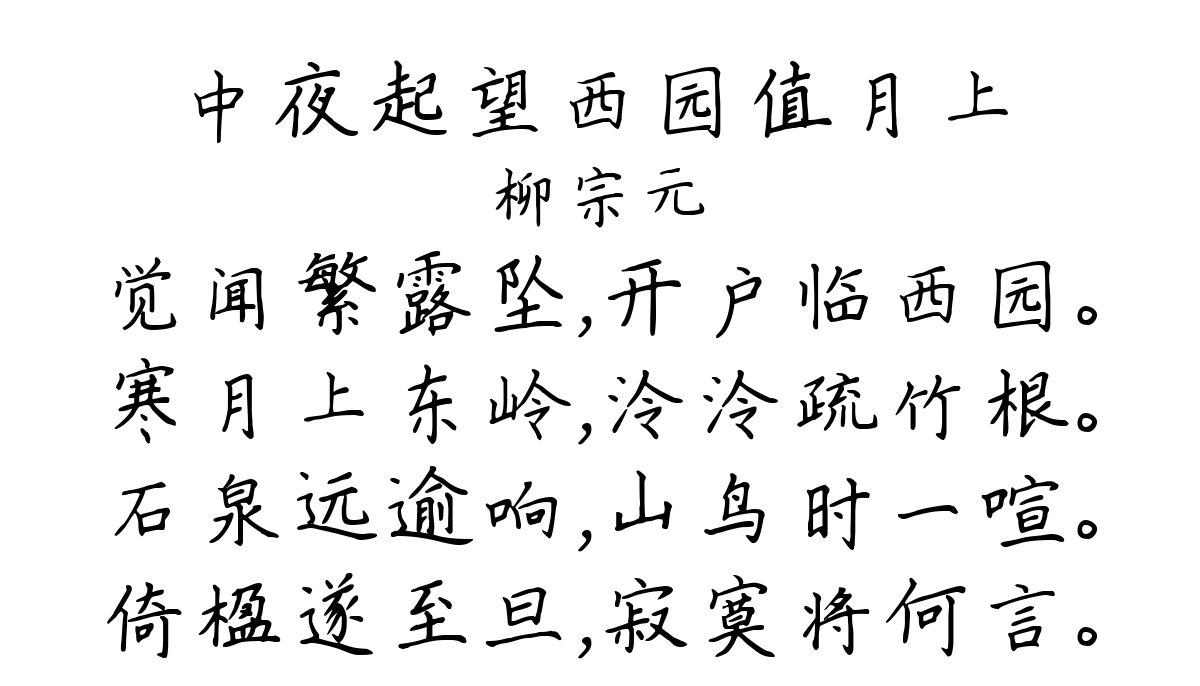 中夜起望西园值月上
柳宗元
觉闻繁露坠,开户临西园。
寒月上东岭,泠泠疏竹根。
石泉远逾响,山鸟时一喧。
倚楹遂至旦,寂寞将何言。